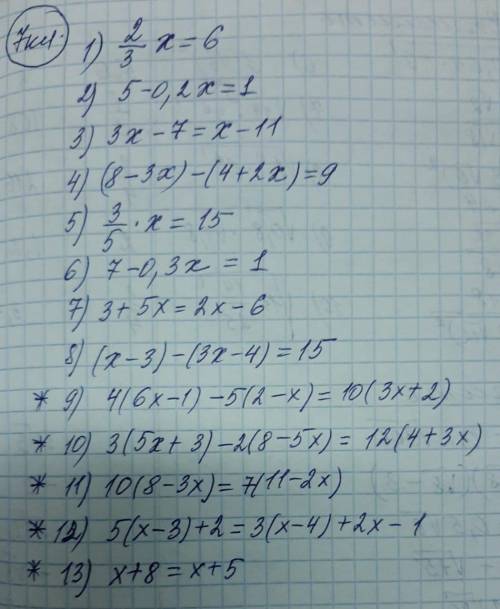 7кл.
1) 2/3 x = 6
2) 5-0,2x=1
3) 3x-7=x-11
4) (8-3x)-(4+2x)=9
5) 3/5 · x = 15
6) 7-0,3x = 1
7) 3+5x=2x-6
8) (x-3)-(3x-4)=15
* 9) 4(6x-1)-5(2-x)=10(3x+2)
* 10) 3(5x+3)-2(8-5x)=12(4+3x)
* 11) 10(8-3x)=7(11-2x)
* 12) 5(x-3)+2=3(x-4)+2x-1
* 13) x+8=x+5